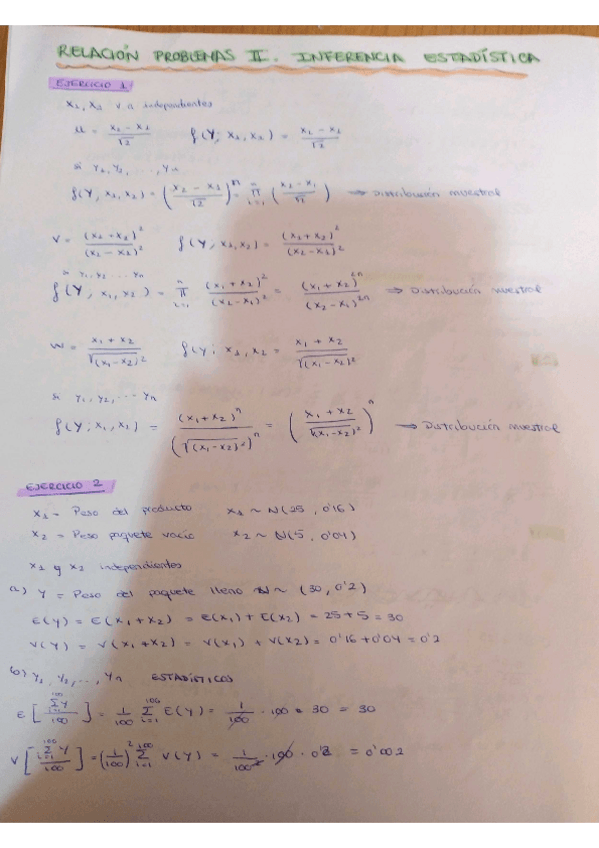 RELACIÓN PROBLEMAS II. INFERENCIA ESTADÍSTICA
EJERCICIO 1
X₁, X₂ v a independientes
U = (X₂ - X₁)/√2   f(Y; X₁, X₂) = (X₂ - X₁)/√2
si Y₁, Y₂, ..., Yn
f(Y, X₁, X₂) = ((X₂ - X₁)/√2)ⁿ = ∏ⁿᵢ₌₁ ((X₂ - X₁)/√2) ⇒ Distribución muestral
V = (X₁ + X₂)²/(X₂ - X₁)²   f(Y, X₁, X₂) = (X₁ + X₂)²/(X₂ - X₁)²
si Y₁, Y₂ ... Yn
f(Y, X₁, X₂) = ∏ⁿᵢ₌₁ (X₁ + X₂)²/(X₂ - X₁)² = (X₁ + X₂)²ⁿ/(X₂ - X₁)²ⁿ ⇒ Distribución muestral
W = (X₁ + X₂)/√(X₁ - X₂)²   f(Y; X₁, X₂ = (X₁ + X₂)/√(X₁ - X₂)²
si Y₁, Y₂, ... Yn
f(Y; X₁, X₂) = (X₁ + X₂)ⁿ/(√(X₁ - X₂)²)ⁿ = ((X₁ + X₂)/√(X₁ - X₂)²)ⁿ → Distribución muestral
EJERCICIO 2
X₁ = Peso del producto   X₁ ~ N(25, 0'16)
X₂ = Peso paquete vacío   X₂ ~ N(5, 0'04)
X₁ y X₂ independientes
a) Y = Peso del paquete lleno N ~ (30, 0'2)
E(Y) = E(X₁ + X₂) = E(X₁) + E(X₂) = 25 + 5 = 30
V(Y) = V(X₁ + X₂) = V(X₁) + V(X₂) = 0'16 + 0'04 = 0'2
b) Y₁, Y₂, ..., Yn   ESTADÍSTICOS
E[∑¹⁰⁰ᵢ₌₁ Y/100] = 1/100 ∑¹⁰⁰ᵢ₌₁ E(Y) = 1/100 · 100 · 30 = 30
V[∑¹⁰⁰ᵢ₌₁ Y/100] = (1/100)² ∑¹⁰⁰ᵢ₌₁ V(Y) = 1/100² · 100 · 0'2 = 0'002